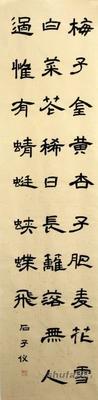 梅子金黃杏子肥麦花雪
白菜花稀日長離落無人
過惟有蜻蜓蛺蝶飛
石子仪